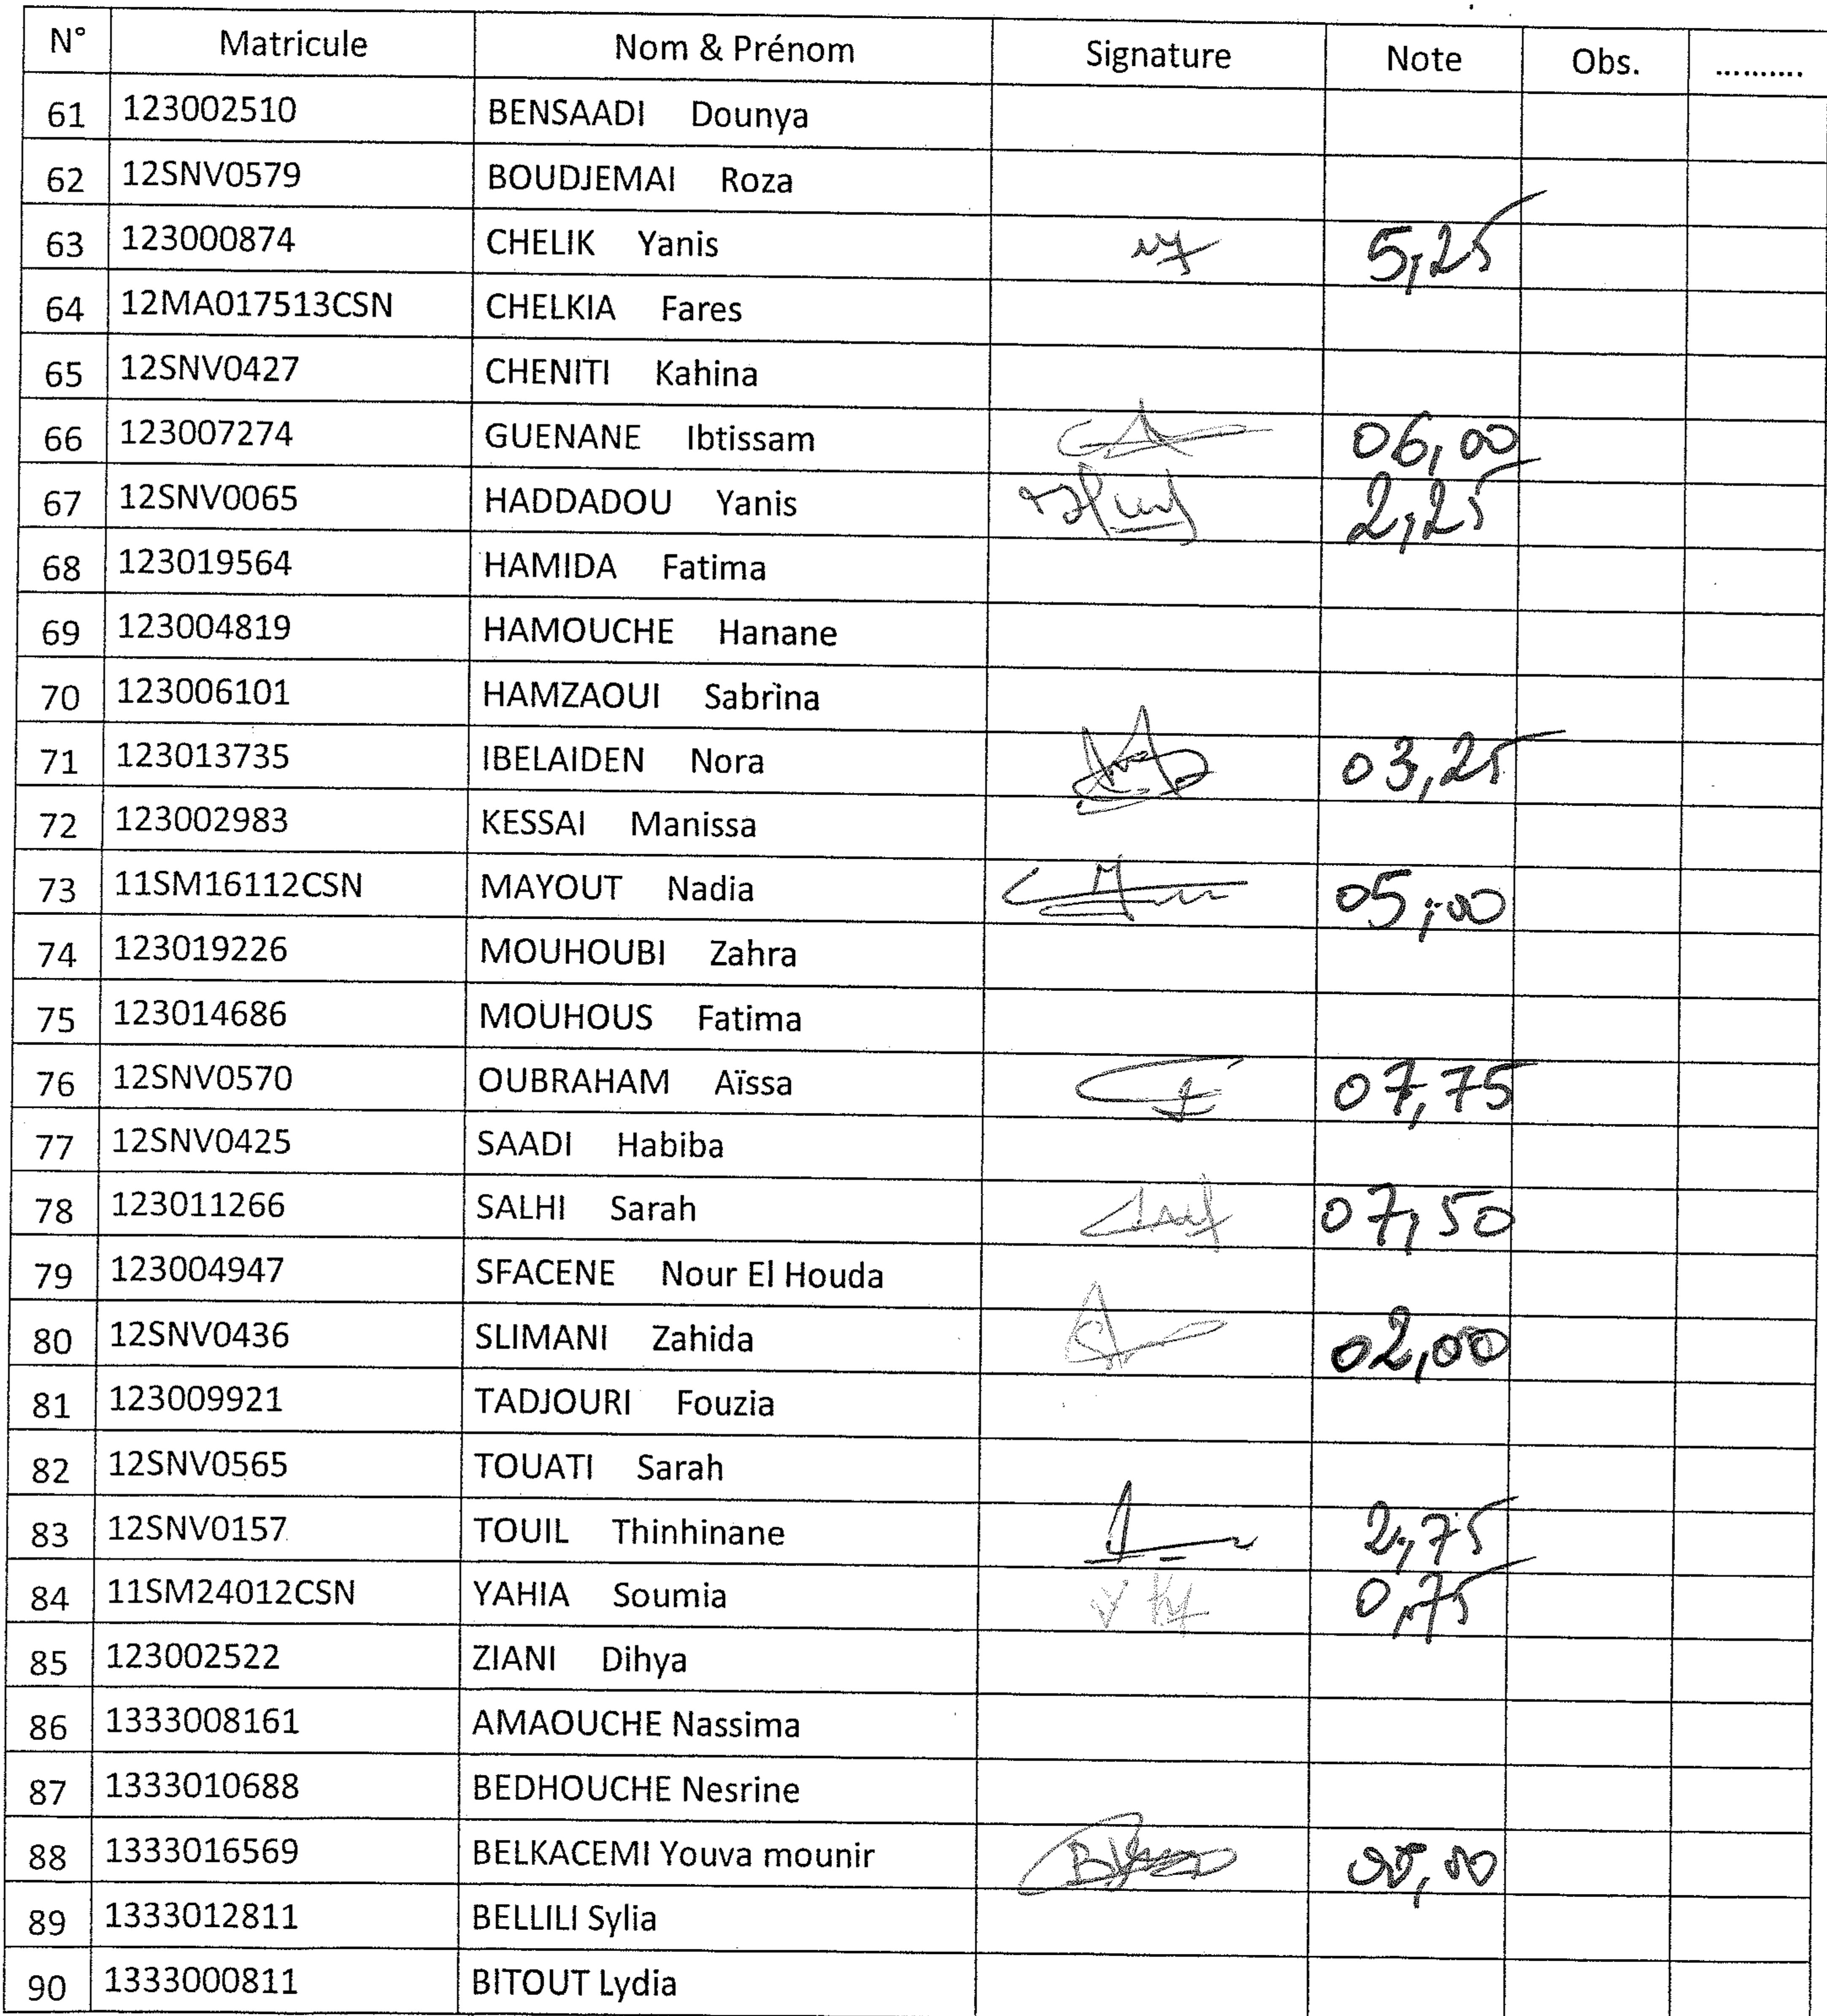 N° Matricule Nom & Prénom Signature Note Obs. ..........
61 123002510 BENSAADI Dounya
62 12SNV0579 BOUDJEMAI Roza
63 123000874 CHELIK Yanis 5,25
64 12MA017513CSN CHELKIA Fares
65 12SNV0427 CHENITI Kahina
66 123007274 GUENANE Ibtissam 06,00
67 12SNV0065 HADDADOU Yanis 2,25
68 123019564 HAMIDA Fatima
69 123004819 HAMOUCHE Hanane
70 123006101 HAMZAOUI Sabrina
71 123013735 IBELAIDEN Nora 03,25
72 123002983 KESSAI Manissa
73 11SM16112CSN MAYOUT Nadia 05,00
74 123019226 MOUHOUBI Zahra
75 123014686 MOUHOUS Fatima
76 12SNV0570 OUBRAHAM Aïssa 07,75
77 12SNV0425 SAADI Habiba
78 123011266 SALHI Sarah 07,50
79 123004947 SFACENE Nour El Houda
80 12SNV0436 SLIMANI Zahida 02,00
81 123009921 TADJOURI Fouzia
82 12SNV0565 TOUATI Sarah
83 12SNV0157 TOUIL Thinhinane 2,75
84 11SM24012CSN YAHIA Soumia 0,75
85 123002522 ZIANI Dihya
86 1333008161 AMAOUCHE Nassima
87 1333010688 BEDHOUCHE Nesrine
88 1333016569 BELKACEMI Youva mounir
89 1333012811 BELLILI Sylia
90 1333000811 BITOUT Lydia